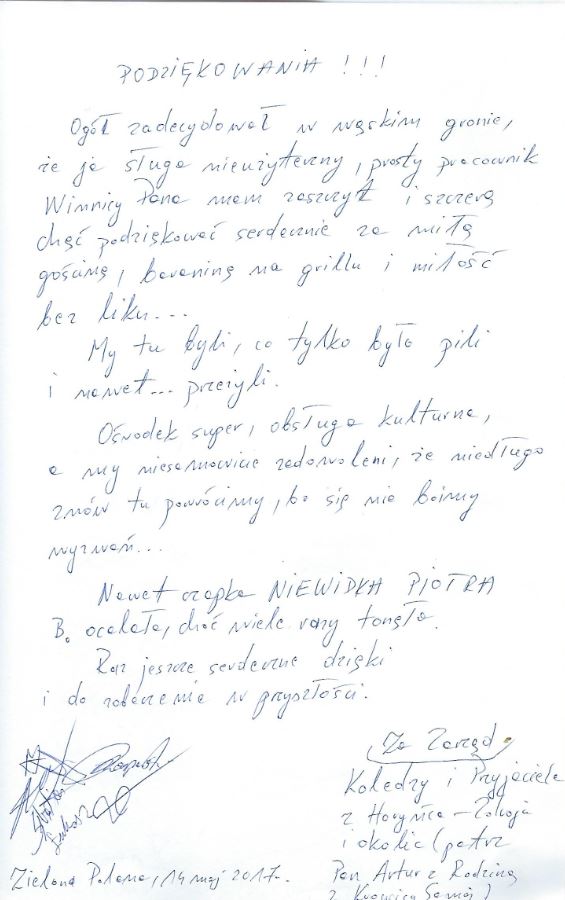 PODZIĘKOWANIA !!!
Ogół zadecydował w wąskim gronie,
że ja sługa nieużyteczny, prosty pracownik
Winnicy Pana mam zaszczyt i szczerą
chęć podziękować serdecznie za miłą
gościnę, baraninę na grillu i miłość
bez liku...
My tu byli, co tylko było pili
i nawet... przeżyli.
Ośrodek super, obsługa kulturna,
a my niesamowicie zadowoleni, że niedługo
znów tu powrócimy, bo się nie boimy
wyzwań...
Nawet czapka NIEWIDKA PIOTRA
B. ocalała, choć wiele razy tonęła.
Raz jeszcze serdeczne dzięki
i do zobaczenia w przyszłości.
Za Zarząd
Koledzy i Przyjaciele
z Horyńca-Zdroju
i okolic (patrz
Pan Artur z Rodziną
z
Łukasz
Zielona Polana, 14 maj 2017r.